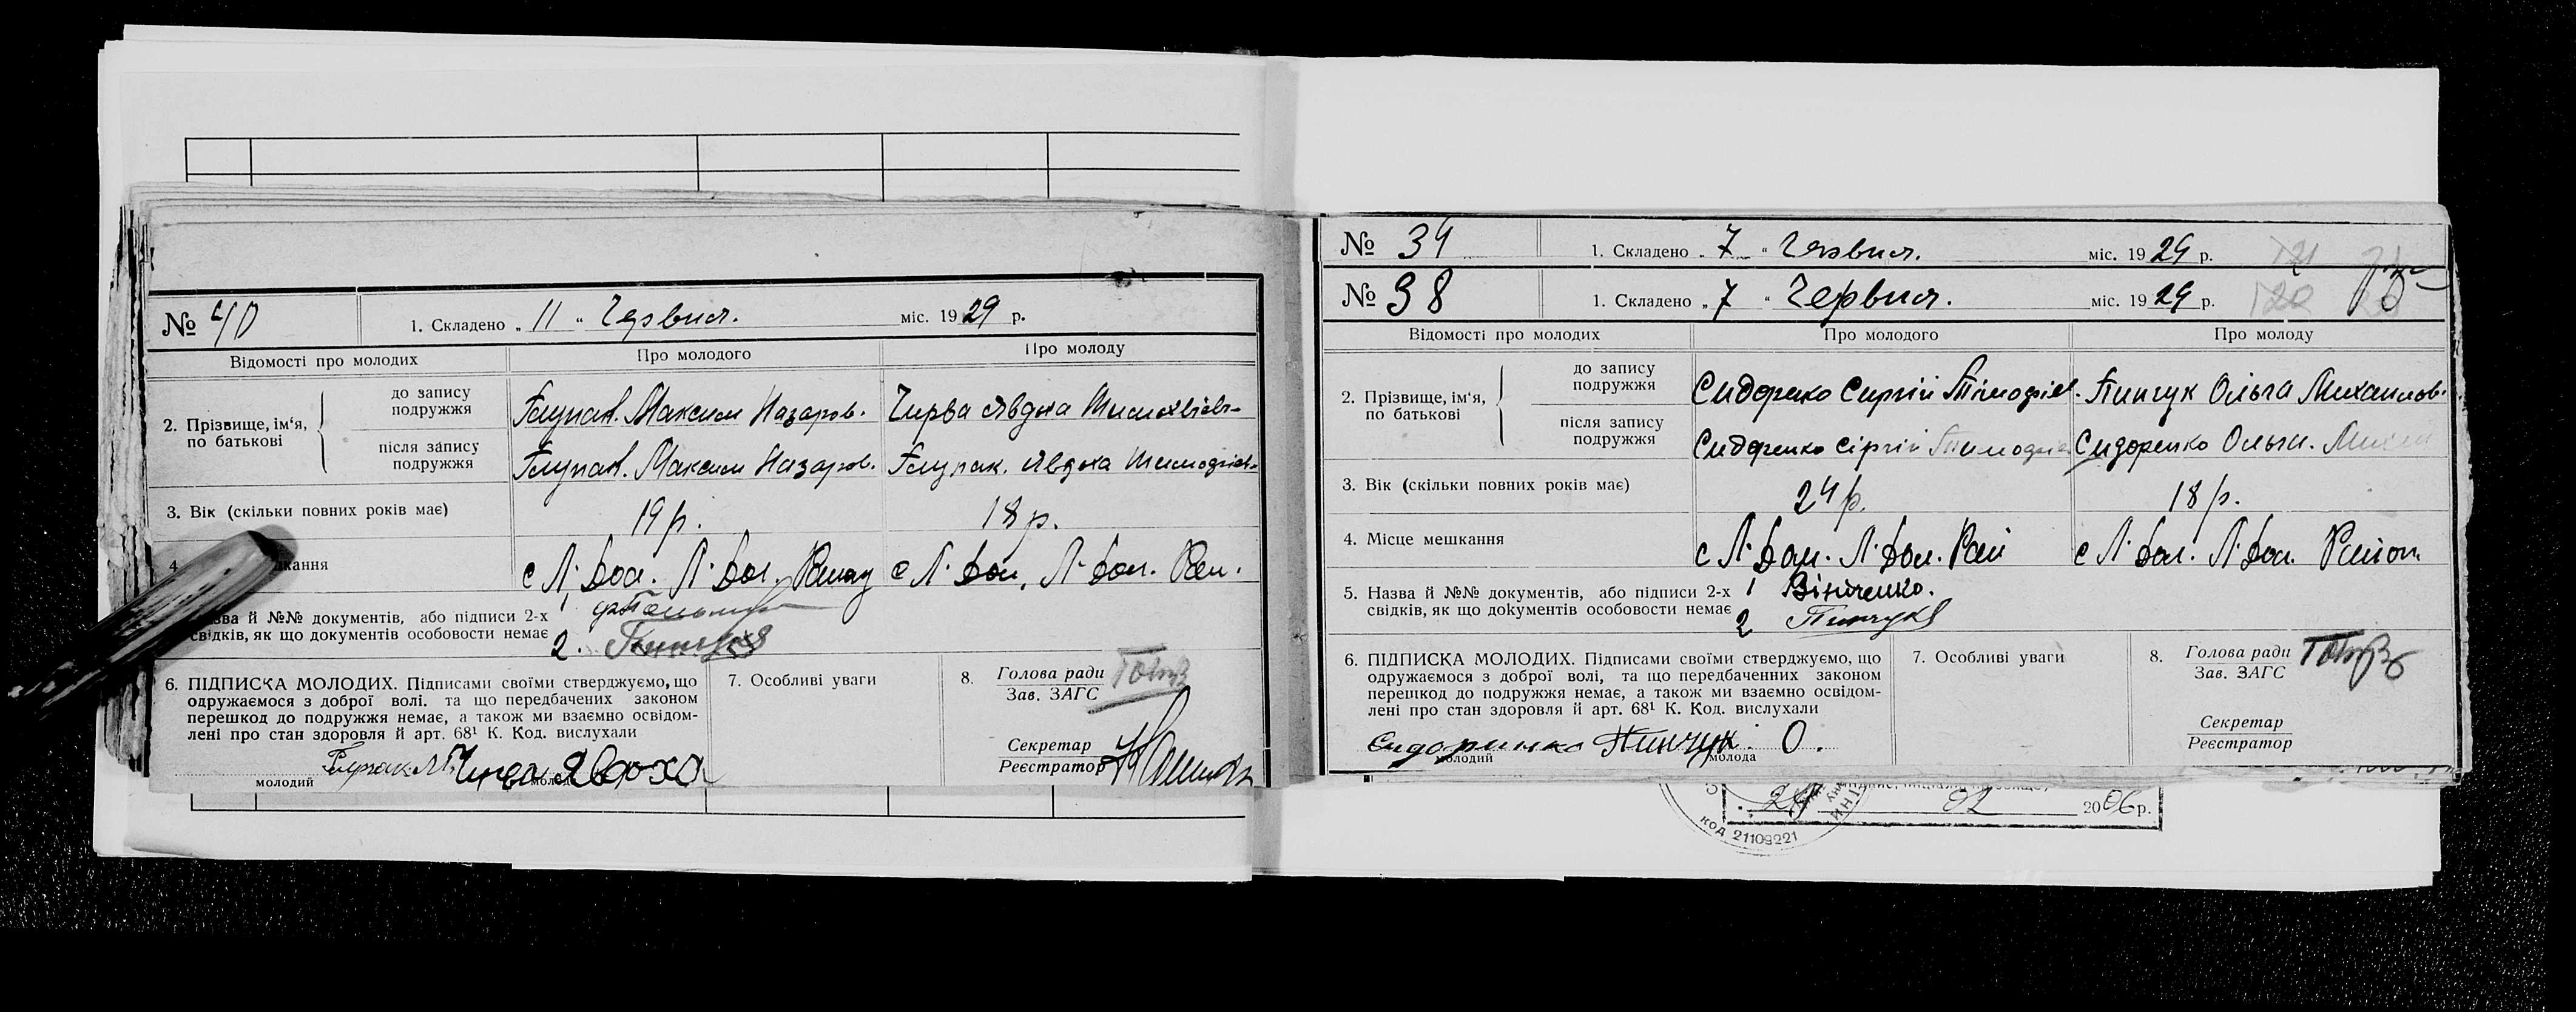 № 40 1. Складено „ 11 “ Червня. міс. 1929 р.
Відомості про молодих Про молодого Про молоду
2. Прізвище, ім‘я, по батькові
до запису подружжя Максим Назаров. Чирва Явдоха
після запису подружжя Максим Назаров. Явдоха
3. Вік (скільки повних років має) 19 р. 18 р.
4. кання с Л. Дол. Л. Дол. с Л. Дол. Л. Дол.
зва й №№ документів, або підписи 2-х
свідків, як що документів особовости немає 2. Пинчук
6. ПІДПИСКА МОЛОДИХ. Підписами своїми стверджуємо, що
одружаємося з доброї волі. та що передбачених законом
перешкод до подружжя немає, а також ми взаємно освідом-
лені про стан здоровля й арт. 68¹ К. Код. вислухали
Явдоха
молодий
7. Особливі уваги
8. Голова ради
Зав. ЗАГС
Секретар
Реєстратор
№ 34 1. Складено „ 7 “ Червня. міс. 1929 р.
№ 38 1. Складено „ 7 “ Червня. міс. 1929 р.
Відомості про молодих Про молодого Про молоду
2. Прізвище, ім‘я, по батькові
до запису подружжя Сидоренко Сергій Пинчук Ольга Михайлов.
після запису подружжя Сидоренко Сергій Сидоренко Ольга
3. Вік (скільки повних років має) 24 р. 18 р.
4. Місце мешкання с Л. Дол. Л. Дол. Рай с Л. Дол. Л. Дол. Район
5. Назва й №№ документів, або підписи 2-х 1 Вініченко.
свідків, як що документів особовости немає 2 Пинчук
6. ПІДПИСКА МОЛОДИХ. Підписами своїми стверджуємо, що
одружаємося з доброї волі, та що передбаченних законом
перешкод до подружжя немає, а також ми взаємно освідом-
лені про стан здоровля й арт. 68¹ К. Код. вислухали
Сидоринко Пинчук. О.
молодий молода
7. Особливі уваги
8. Голова ради
Зав. ЗАГС
Секретар
Реєстратор
02 2006 р.
код 21109221